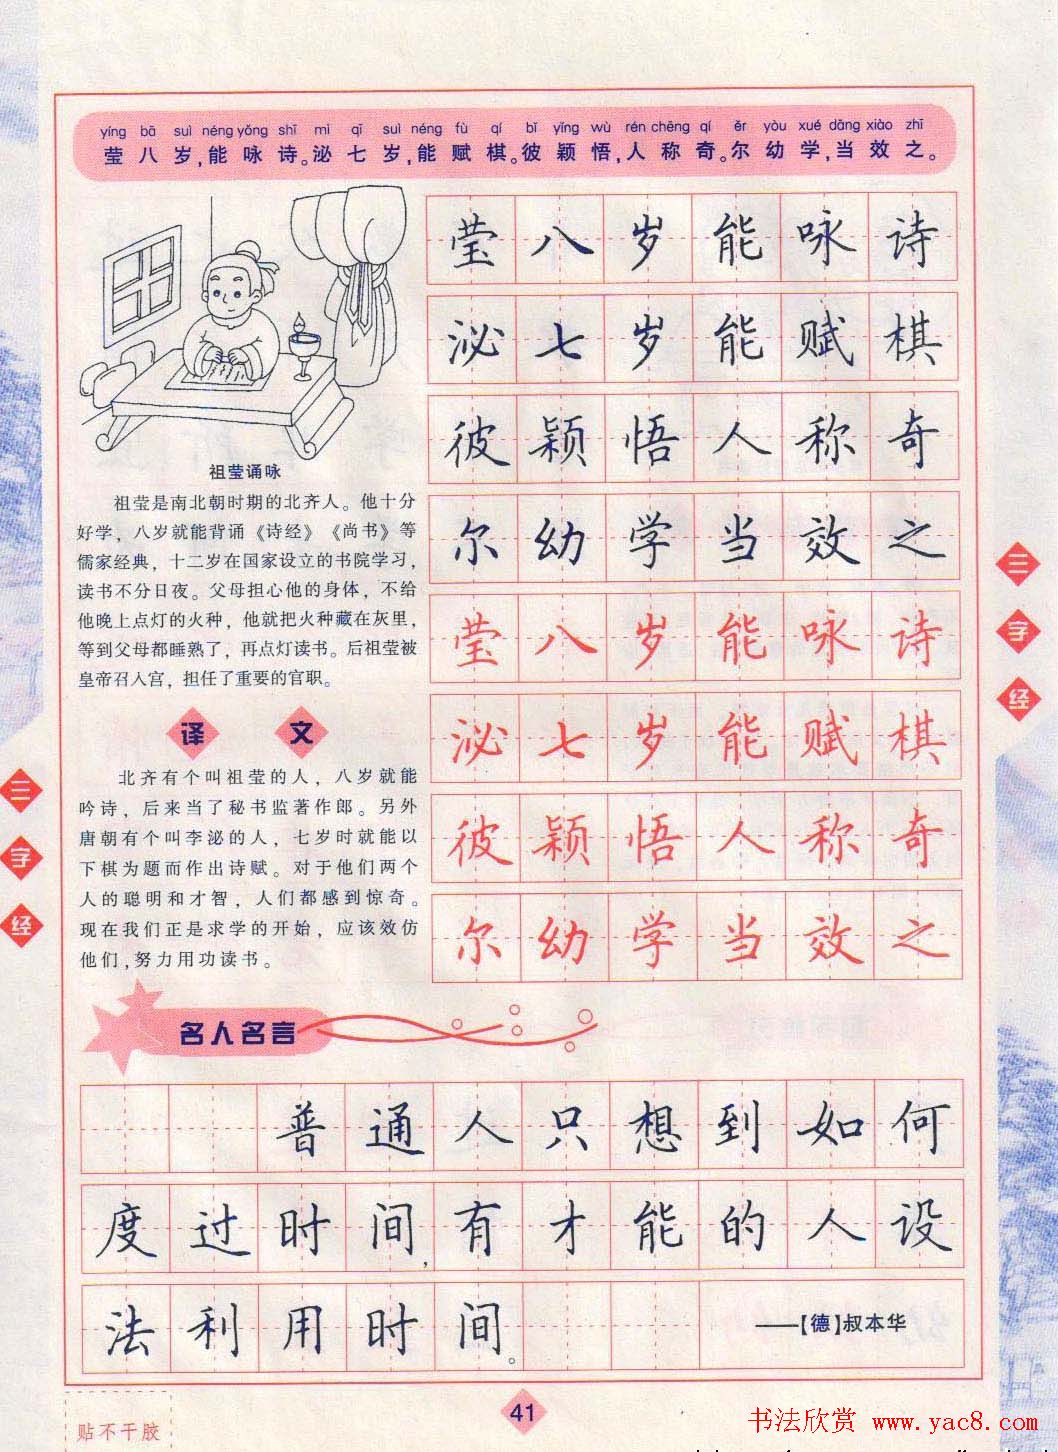 yíng bā suì néng yǒng shī mì qī suì néng fù qí bǐ yǐng wù rén chēng qí ěr yòu xué dāng xiào zhī
莹八岁,能咏诗。泌七岁,能赋棋。彼颖悟,人称奇。尔幼学,当效之。
祖莹诵咏
祖莹是南北朝时期的北齐人。他十分
好学，八岁就能背诵《诗经》《尚书》等
儒家经典，十二岁在国家设立的书院学习，
读书不分日夜。父母担心他的身体，不给
他晚上点灯的火种，他就把火种藏在灰里，
等到父母都睡熟了，再点灯读书。后祖莹被
皇帝召入宫，担任了重要的官职。
译文
北齐有个叫祖莹的人，八岁就能
吟诗，后来当了秘书监著作郎。另外
唐朝有个叫李泌的人，七岁时就能以
下棋为题而作出诗赋。对于他们两个
人的聪明和才智，人们都感到惊奇。
现在我们正是求学的开始，应该效仿
他们,努力用功读书。
莹八岁能咏诗
泌七岁能赋棋
彼颖悟人称奇
尔幼学当效之
莹八岁能咏诗
泌七岁能赋棋
彼颖悟人称奇
尔幼学当效之
三字经
三字经
名人名言
普通人只想到如何
度过时间,有才能的人设
法利用时间。
——【德】叔本华
41
贴不干胶
书法欣赏 www.yac8.com